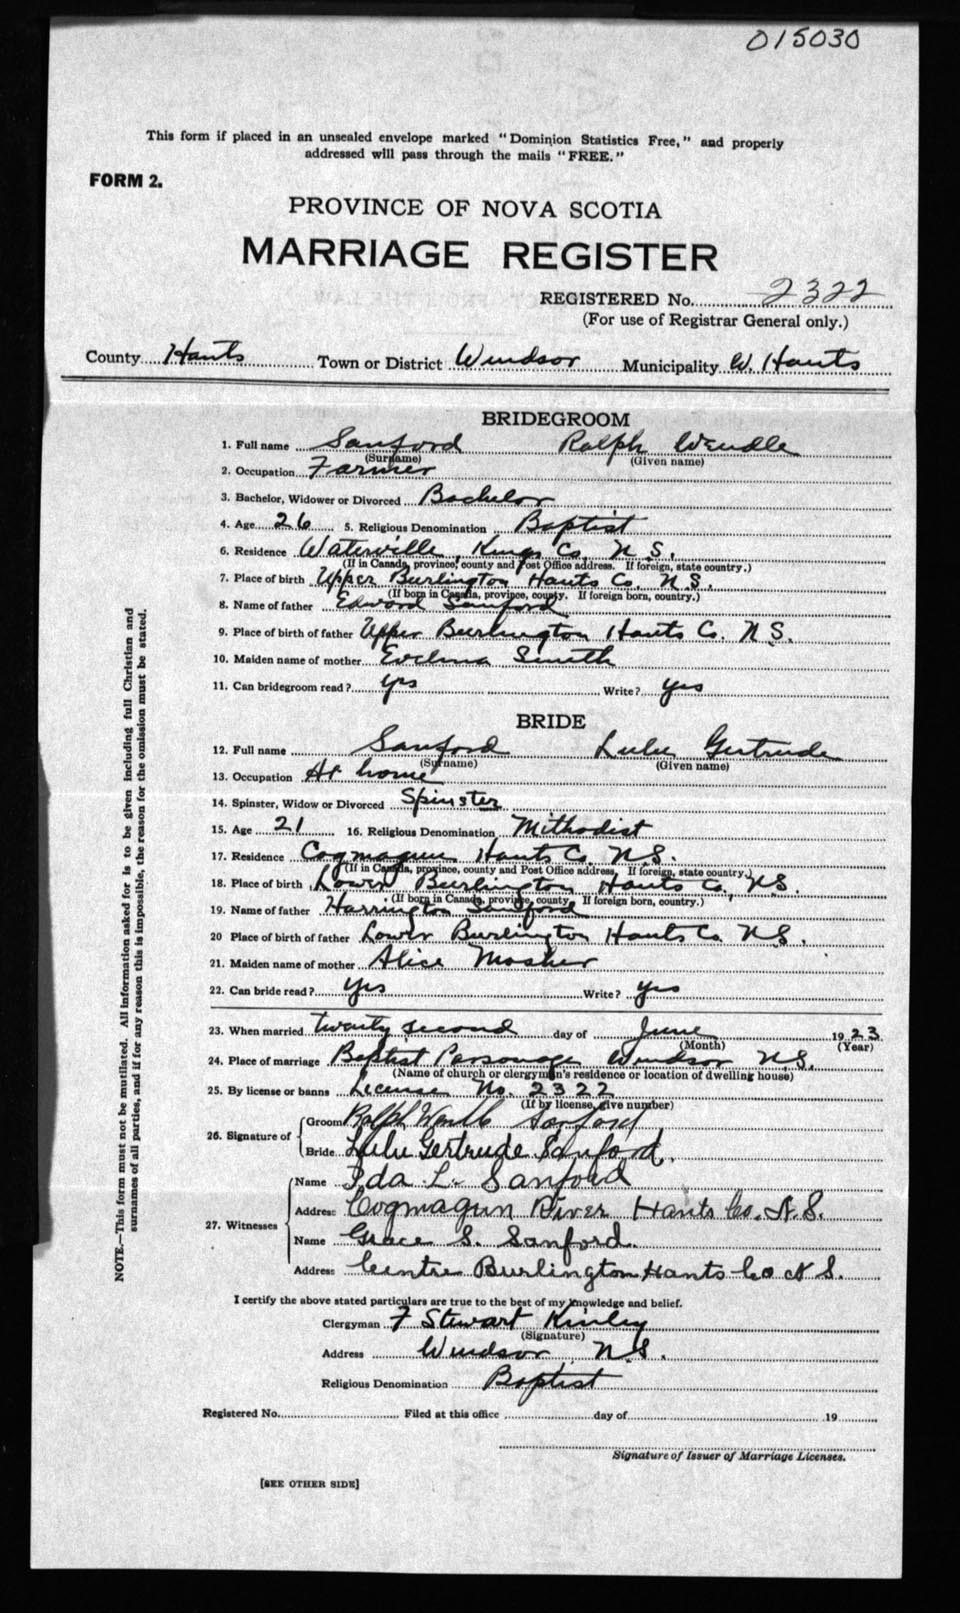 015030
This form if placed in an unsealed envelope marked "Dominion Statistics Free," and properly
addressed will pass through the mails "FREE."
FORM 2.
PROVINCE OF NOVA SCOTIA
MARRIAGE REGISTER
REGISTERED No. 2322
(For use of Registrar General only.)
County Hants Town or District Windsor Municipality W. Hants
BRIDEGROOM
1. Full name Sanford Ralph Wendle
(Surname) (Given name)
2. Occupation Farmer
3. Bachelor, Widower or Divorced Bachelor
4. Age 26 5. Religious Denomination Baptist
6. Residence Waterville, Kings Co. N.S.
(If in Canada, province, county and Post Office address. If foreign, state country.)
7. Place of birth Upper Burlington Hants Co. N.S.
(If born in Canada, province, county. If foreign born, country.)
8. Name of father Edward Sanford
9. Place of birth of father Upper Burlington Hants Co. N.S.
10. Maiden name of mother Evelina Smith
11. Can bridegroom read? yes Write? yes
BRIDE
12. Full name Sanford Lulu Gertrude
(Surname) (Given name)
13. Occupation At home
14. Spinster, Widow or Divorced Spinster
15. Age 21 16. Religious Denomination Methodist
17. Residence Cogmagun Hants Co. N.S.
(If in Canada, province, county and Post Office address. If foreign, state country.)
18. Place of birth Lower Burlington Hants Co., N.S.
(If born in Canada, province, county. If foreign born, country.)
19. Name of father Harrington Sanford
20 Place of birth of father Lower Burlington Hants Co. N.S.
21. Maiden name of mother Alice Mosher
22. Can bride read? yes Write? yes
23. When married twenty second day of June 1923
(Month) (Year)
24. Place of marriage Baptist Parsonage Windsor N.S.
(Name of church or clergyman's residence or location of dwelling house)
25. By license or banns License No. 2322
(If by license, give number)
26. Signature of Groom Ralph Wendle Sanford
Bride Lulu Gertrude Sanford.
27. Witnesses Name Ida L. Sanford
Address Cogmagun River Hants Co. N.S.
Name Grace S. Sanford.
Address Centre Burlington Hants Co N.S.
I certify the above stated particulars are true to the best of my knowledge and belief.
Clergyman F Stewart Kinley
(Signature)
Address Windsor, N.S.
Religious Denomination Baptist
Registered No. Filed at this office day of 19
Signature of Issuer of Marriage Licenses.
[SEE OTHER SIDE]
NOTE.—This form must not be mutilated. All information asked for is to be given including full Christian and
surnames of all parties, and if for any reason this is impossible, the reason for the omission must be stated.